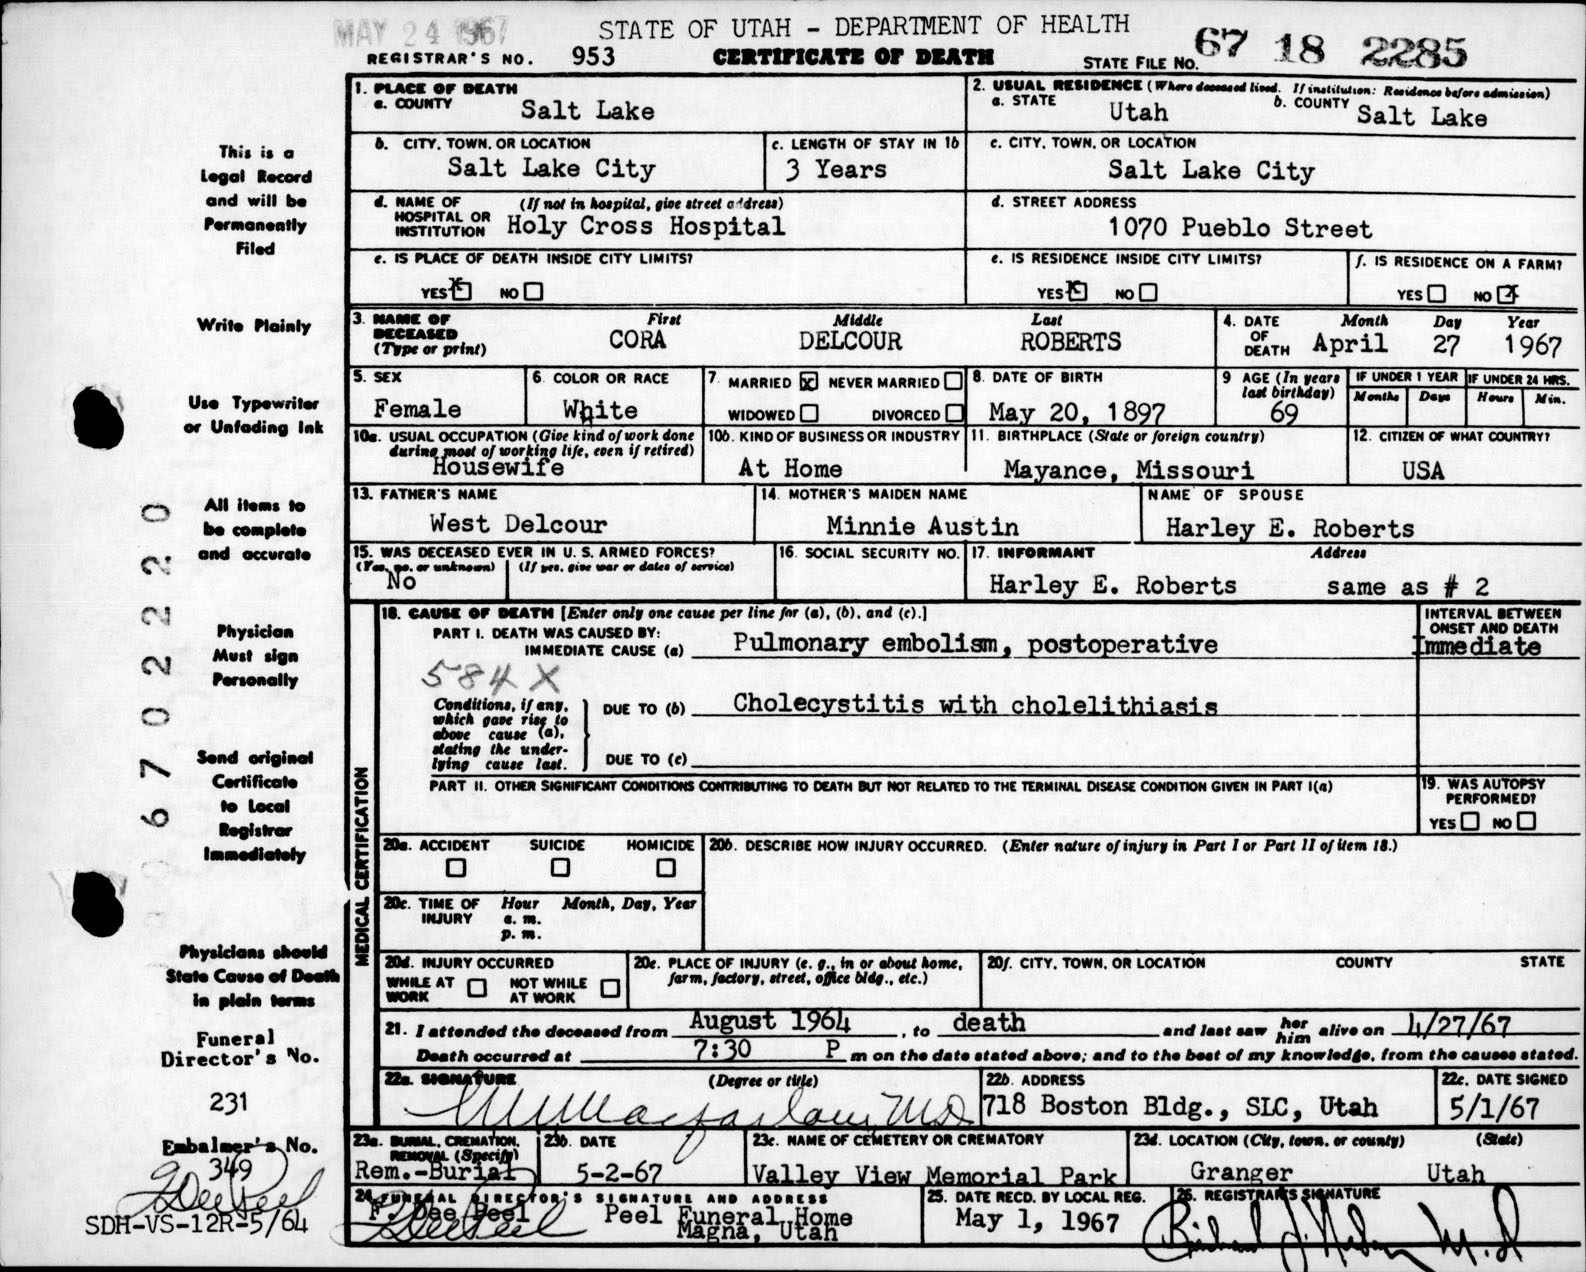 MAY 24 1967
STATE OF UTAH - DEPARTMENT OF HEALTH
REGISTRAR'S NO. 953 CERTIFICATE OF DEATH STATE FILE NO. 67 18 2285
1. PLACE OF DEATH
a. COUNTY Salt Lake
2. USUAL RESIDENCE (Where deceased lived. If institution: Residence before admission)
a. STATE Utah b. COUNTY Salt Lake
b. CITY, TOWN, OR LOCATION Salt Lake City
c. LENGTH OF STAY IN 1b 3 Years
c. CITY, TOWN, OR LOCATION Salt Lake City
d. NAME OF HOSPITAL OR INSTITUTION (If not in hospital, give street address) Holy Cross Hospital
d. STREET ADDRESS 1070 Pueblo Street
e. IS PLACE OF DEATH INSIDE CITY LIMITS?
YES X NO
e. IS RESIDENCE INSIDE CITY LIMITS?
YES X NO
f. IS RESIDENCE ON A FARM?
YES NO X
3. NAME OF DECEASED (Type or print)
First Middle Last
CORA DELCOUR ROBERTS
4. DATE OF DEATH Month Day Year
April 27 1967
5. SEX Female
6. COLOR OR RACE White
7. MARRIED X NEVER MARRIED
WIDOWED DIVORCED
8. DATE OF BIRTH May 20, 1897
9 AGE (In years last birthday) 69
IF UNDER 1 YEAR Months Days
IF UNDER 24 HRS. Hours Min.
10a. USUAL OCCUPATION (Give kind of work done during most of working life, even if retired) Housewife
10b. KIND OF BUSINESS OR INDUSTRY At Home
11. BIRTHPLACE (State or foreign country) Mayance, Missouri
12. CITIZEN OF WHAT COUNTRY? USA
13. FATHER'S NAME West Delcour
14. MOTHER'S MAIDEN NAME Minnie Austin
NAME OF SPOUSE Harley E. Roberts
15. WAS DECEASED EVER IN U. S. ARMED FORCES?
(Yes, no, or unknown) (If yes, give war or dates of service)
No
16. SOCIAL SECURITY NO.
17. INFORMANT Address
Harley E. Roberts same as # 2
MEDICAL CERTIFICATION
18. CAUSE OF DEATH [Enter only one cause per line for (a), (b), and (c).]
INTERVAL BETWEEN ONSET AND DEATH
PART I. DEATH WAS CAUSED BY:
IMMEDIATE CAUSE (a) Pulmonary embolism, postoperative Immediate
584 X
Conditions, if any, which gave rise to above cause (a), stating the underlying cause last.
DUE TO (b) Cholecystitis with cholelithiasis
DUE TO (c)
PART II. OTHER SIGNIFICANT CONDITIONS CONTRIBUTING TO DEATH BUT NOT RELATED TO THE TERMINAL DISEASE CONDITION GIVEN IN PART I(a)
19. WAS AUTOPSY PERFORMED?
YES NO
20a. ACCIDENT SUICIDE HOMICIDE
20b. DESCRIBE HOW INJURY OCCURRED. (Enter nature of injury in Part I or Part II of item 18.)
20c. TIME OF INJURY Hour Month, Day, Year
a. m.
p. m.
20d. INJURY OCCURRED
WHILE AT WORK NOT WHILE AT WORK
20e. PLACE OF INJURY (e. g., in or about home, farm, factory, street, office bldg., etc.)
20f. CITY, TOWN, OR LOCATION COUNTY STATE
21. I attended the deceased from August 1964, to death and last saw her him alive on 4/27/67
Death occurred at 7:30 P m on the date stated above; and to the best of my knowledge, from the causes stated.
22a. SIGNATURE (Degree or title)
Macfarlane MD
22b. ADDRESS 718 Boston Bldg., SLC, Utah
22c. DATE SIGNED 5/1/67
23a. BURIAL, CREMATION, REMOVAL (Specify) Rem.-Burial
23b. DATE 5-2-67
23c. NAME OF CEMETERY OR CREMATORY Valley View Memorial Park
23d. LOCATION (City, town, or county) (State)
Granger Utah
24. FUNERAL DIRECTOR'S SIGNATURE AND ADDRESS
F. Dee Peel Peel Funeral Home
Magna, Utah
25. DATE RECD. BY LOCAL REG. May 1, 1967
26. REGISTRAR'S SIGNATURE
M.D
This is a
Legal Record
and will be
Permanently
Filed
Write Plainly
Use Typewriter
or Unfading Ink
All items to
be complete
and accurate
Physician
Must sign
Personally
Send original
Certificate
to Local
Registrar
Immediately
Physicians should
State Cause of Death
in plain terms
Funeral
Director's No.
231
Embalmer's No.
349
SDH-VS-12R-5/64
6 7 0 2 2 2 0